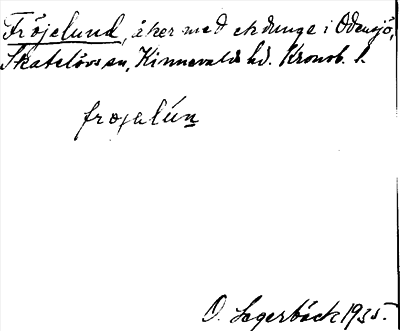 Fröjelund, åker med ekdunge i Odensjö,
Skatelövs sn, Kinnevalds hd. Kronob. l.
frojalún
O. Lagerbäck 1935.